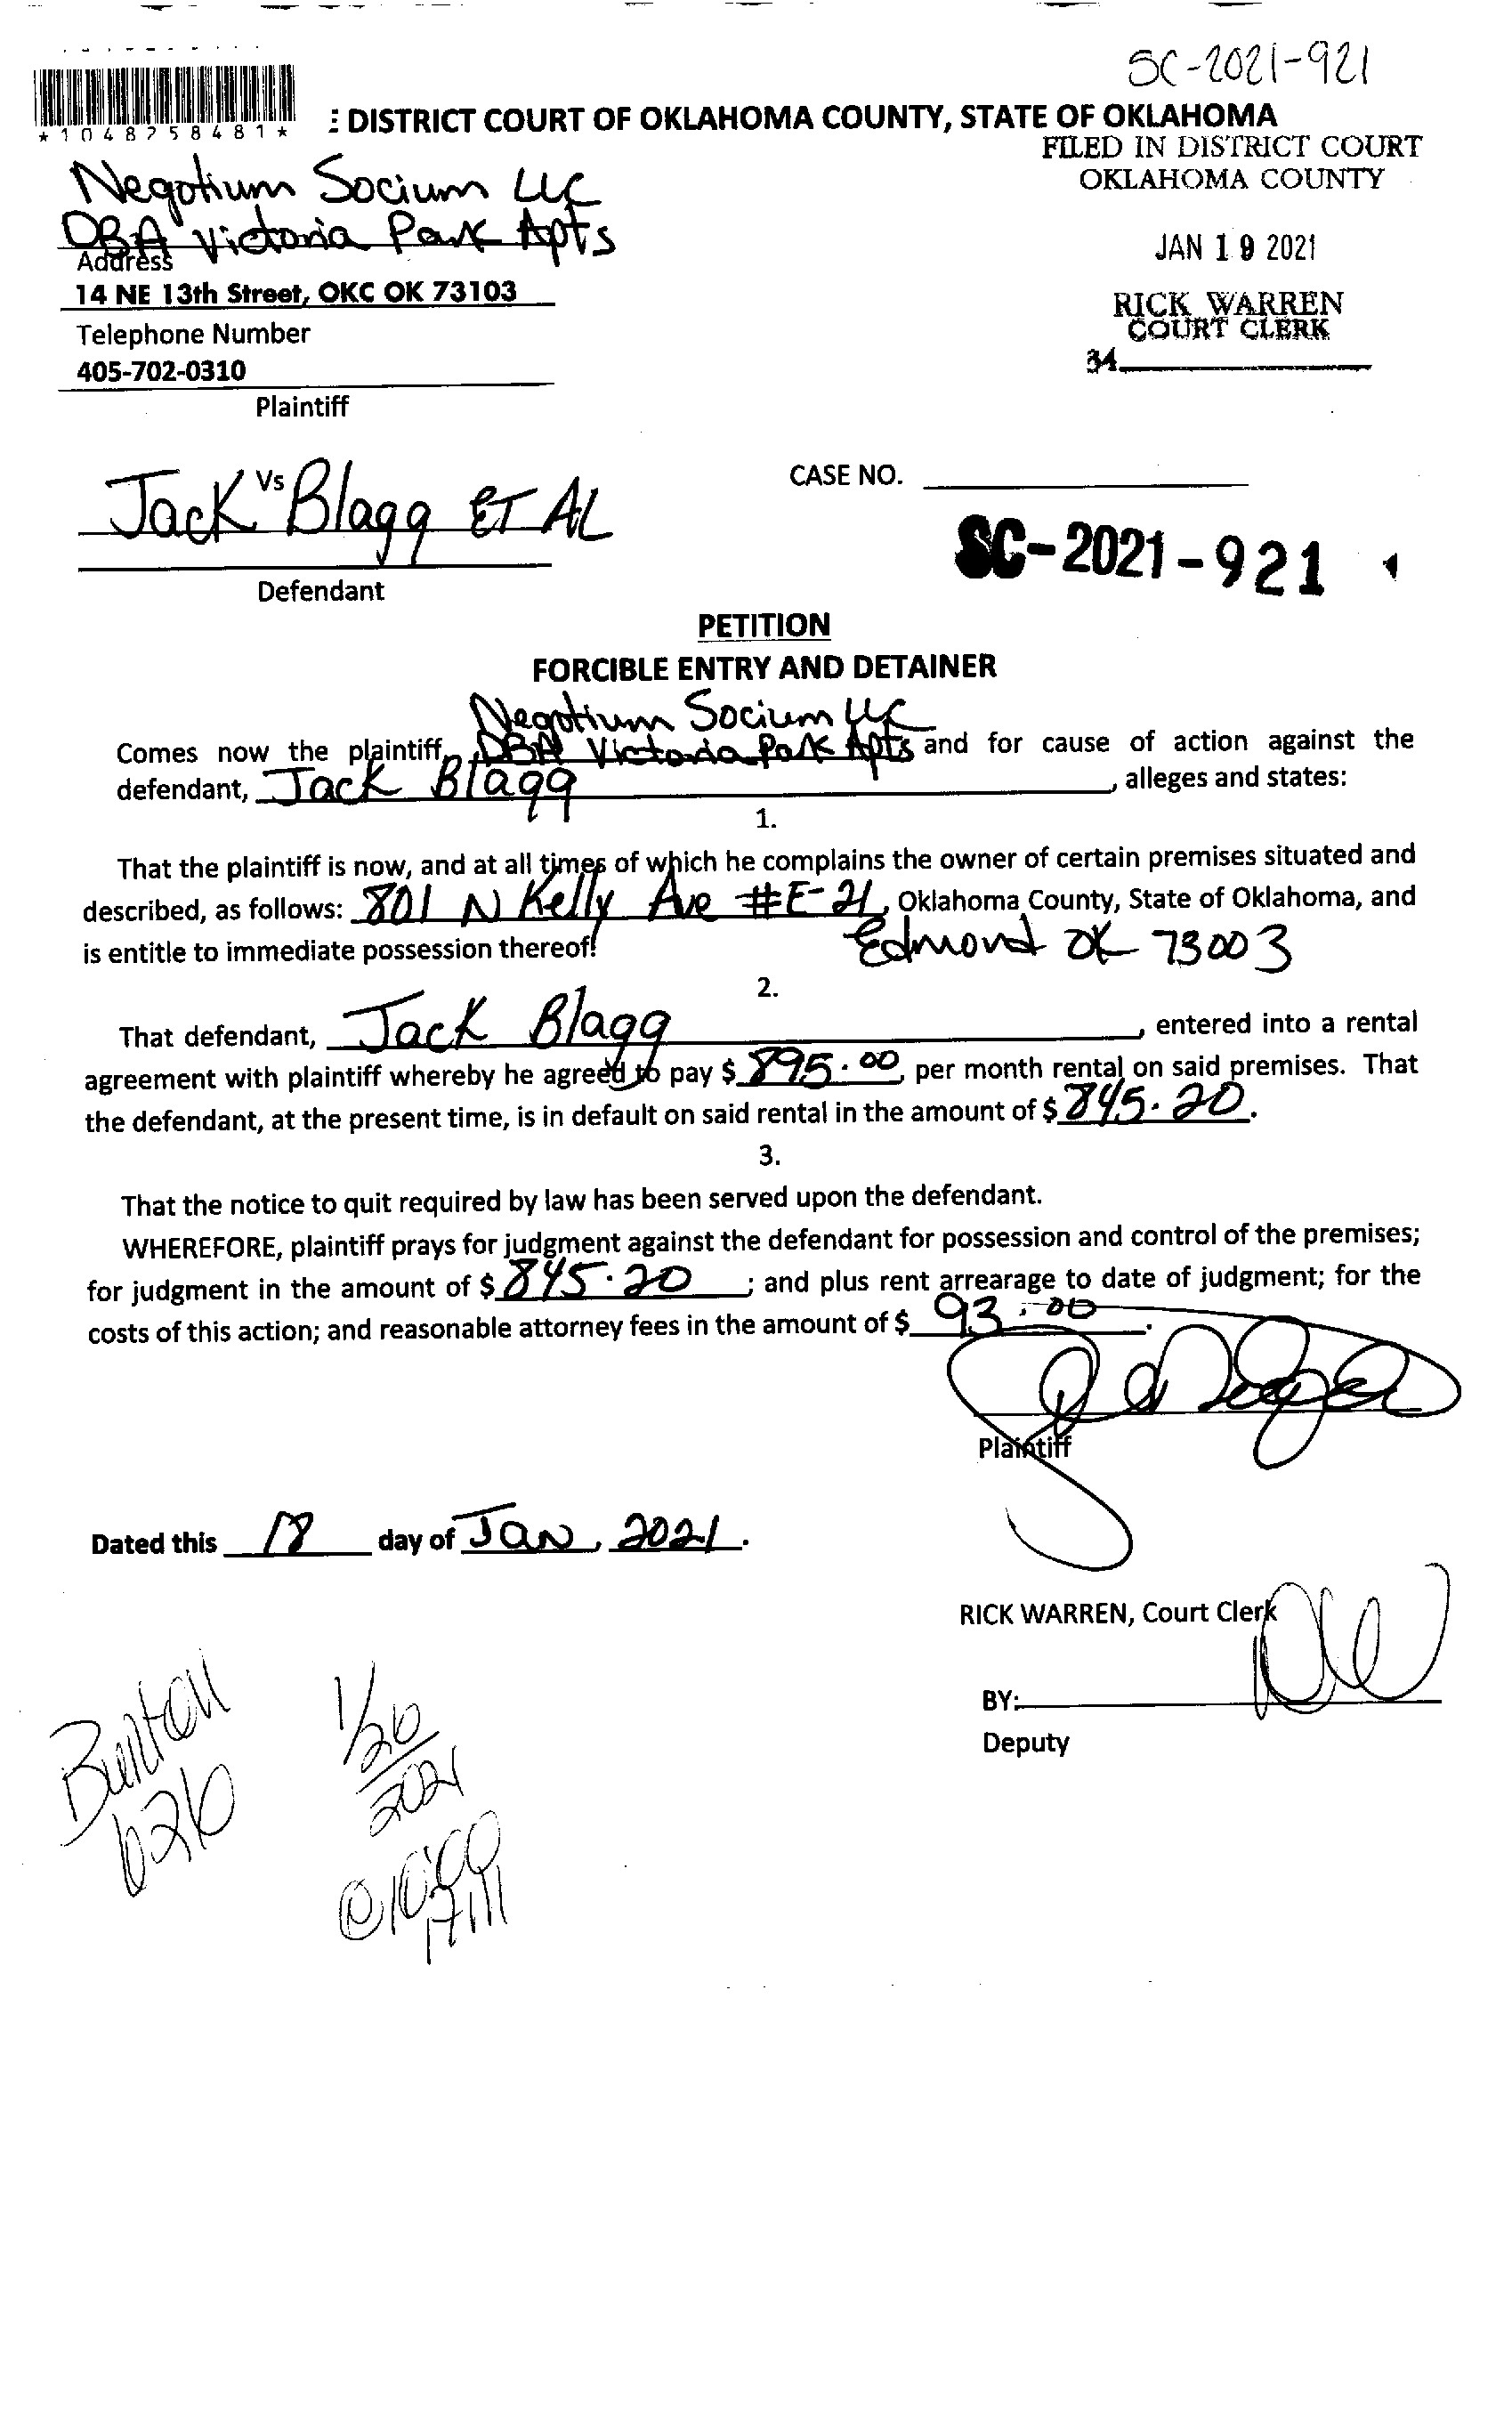 SC-2021-921
*1048758481*
: DISTRICT COURT OF OKLAHOMA COUNTY, STATE OF OKLAHOMA
FILED IN DISTRICT COURT
OKLAHOMA COUNTY
Negotium Socium LLC
DBA Victoria Park Apts
Address
JAN 19 2021
14 NE 13th Street, OKC OK 73103
RICK WARREN
COURT CLERK
Telephone Number
34
405-702-0310
Plaintiff
Vs
CASE NO.
Jack Blagg ET AL
SC-2021-921
Defendant
PETITION
FORCIBLE ENTRY AND DETAINER
Negotium Socium LLC
Comes now the plaintiff, DBA Victoria Park Apts and for cause of action against the
defendant, Jack Blagg, alleges and states:
1.
That the plaintiff is now, and at all times of which he complains the owner of certain premises situated and
described, as follows: 801 N Kelly Ave #E-21, Oklahoma County, State of Oklahoma, and
is entitle to immediate possession thereof. Edmond OK 73003
2.
That defendant, Jack Blagg, entered into a rental
agreement with plaintiff whereby he agreed to pay $ 895.00, per month rental on said premises. That
the defendant, at the present time, is in default on said rental in the amount of $ 845.20.
3.
That the notice to quit required by law has been served upon the defendant.
WHEREFORE, plaintiff prays for judgment against the defendant for possession and control of the premises;
for judgment in the amount of $ 845.20; and plus rent arrearage to date of judgment; for the
costs of this action; and reasonable attorney fees in the amount of $ 93.00.
Plaintiff
Dated this 18 day of Jan, 2021.
RICK WARREN, Court Clerk
BY:
Deputy
626
1/26
2021
@10:00